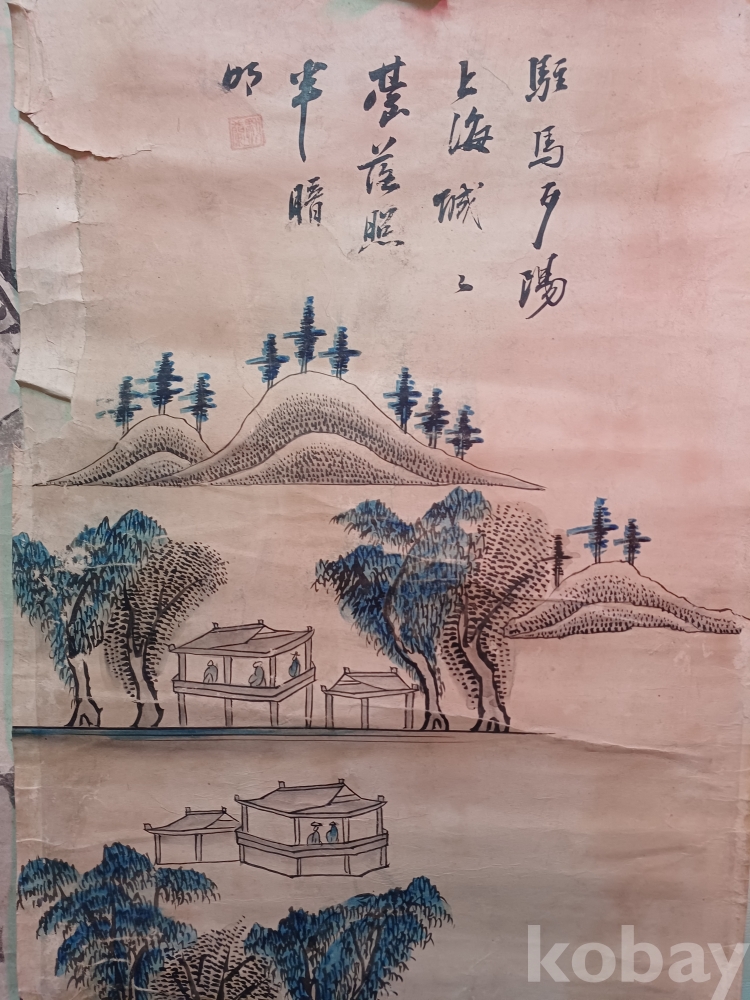 駐馬夕陽
上海城〻
臺落照
半暗
明
kobay